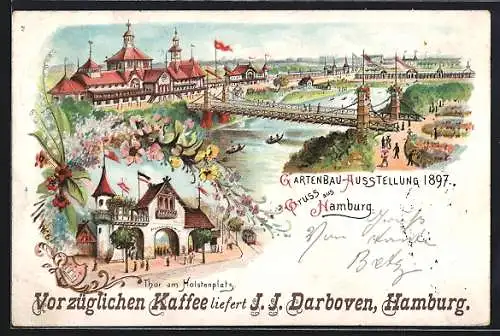 GARTENBAU-AUSSTELLUNG 1897.
Gruss aus
Hamburg.
Gruß
Von
Betz
Thor am Holstenplatz
Vorzüglichen Kaffee liefert J. J. Darboven, Hamburg.